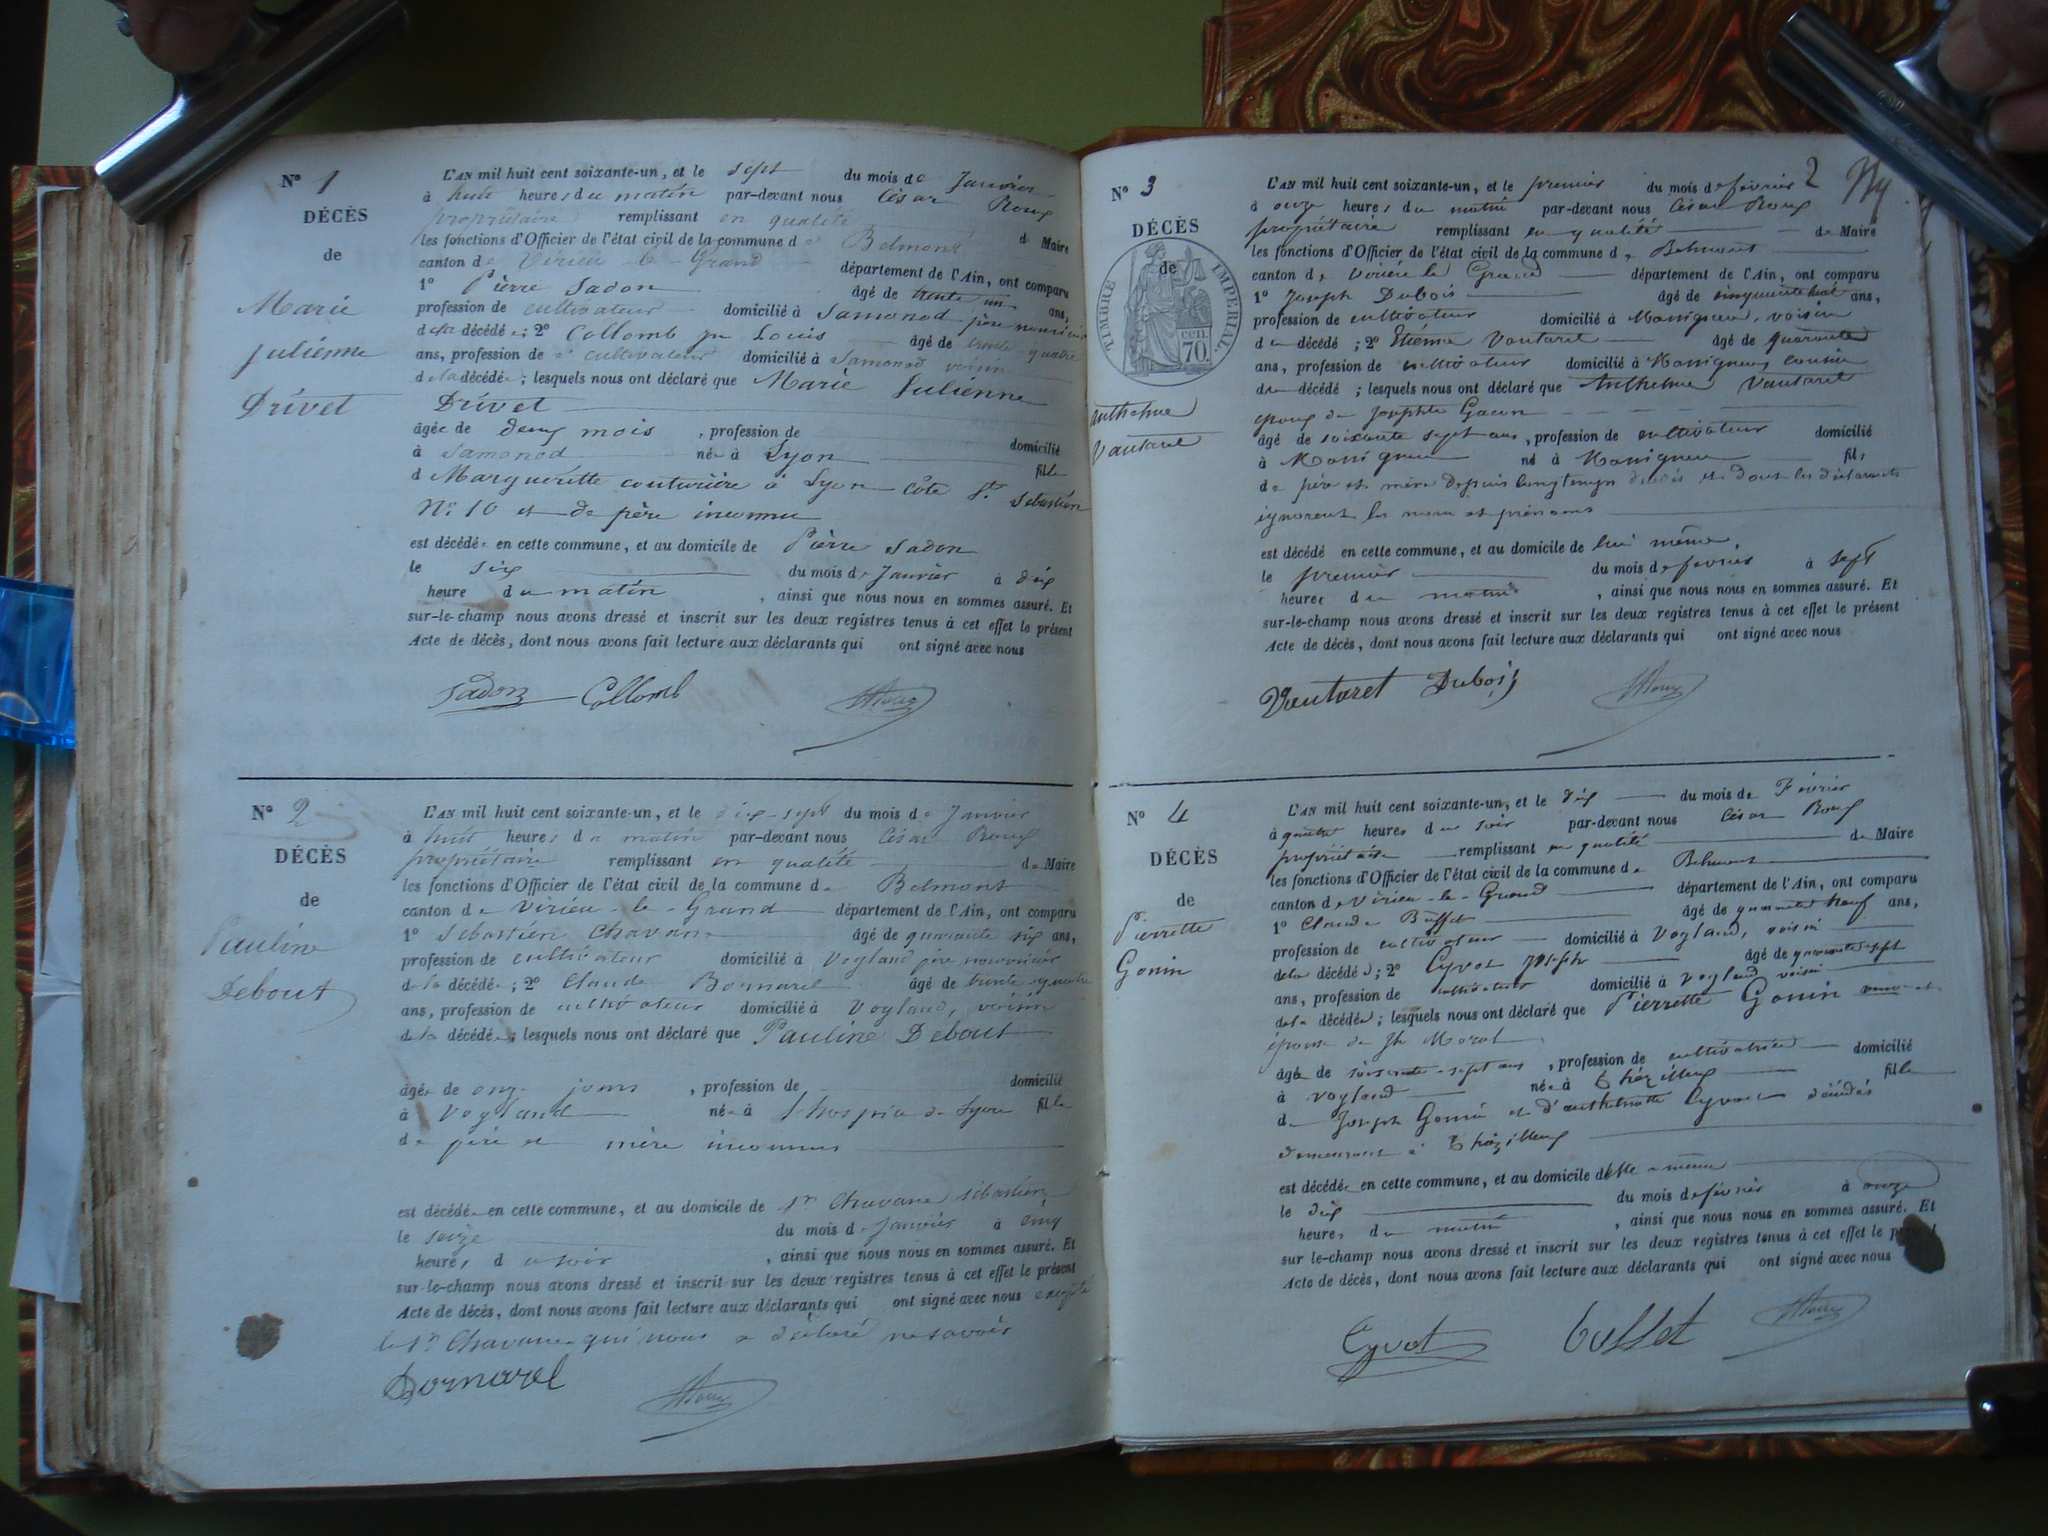 N° 1
DÉCÈS
de
Marie
Julienne
Drivet
L'AN mil huit cent soixante-un, et le sept du mois de Janvier
à huit heures du matin par-devant nous César Roux
propriétaire remplissant en qualité
les fonctions d'Officier de l'état civil de la commune de Belmont de Maire
canton de Virieu-le-Grand département de l'Ain, ont comparu
1° Pierre Sadon âgé de trente un ans,
profession de cultivateur domicilié à Samonod père nourricier
de la décédée; 2° Collomb Louis âgé de trente quatre
ans, profession de cultivateur domicilié à Samonod voisin
de la décédée; lesquels nous ont déclaré que Marie Julienne
Drivet
âgée de deux mois, profession de domicilié
à Samonod née à Lyon fille
d Margueritte couturière à Lyon côte St. Sébastien
N° 10 et de père inconnu
est décédée en cette commune, et au domicile de Pierre Sadon
le six du mois de Janvier à dix
heure du matin, ainsi que nous nous en sommes assuré. Et
sur-le-champ nous avons dressé et inscrit sur les deux registres tenus à cet effet le présent
Acte de décès, dont nous avons fait lecture aux déclarants qui ont signé avec nous
Sadon Collomb Roux
N° 2
DÉCÈS
de
Pauline
Debout
L'AN mil huit cent soixante-un, et le dix-sept du mois de Janvier
à huit heures du matin par-devant nous César Roux
propriétaire remplissant en qualité de Maire
les fonctions d'Officier de l'état civil de la commune de Belmont
canton de Virieu-le-Grand département de l'Ain, ont comparu
1° Sébastien Chavane âgé de quarante six ans,
profession de cultivateur domicilié à Vogland père nourricier
de la décédée; 2° Claude Bornarel âgé de trente quatre
ans, profession de cultivateur domicilié à Vogland, voisin
de la décédée; lesquels nous ont déclaré que Pauline Debout
âgée de onze jours, profession de domicilié
à Vogland née à Lyon fille
de père et mère inconnus
est décédée en cette commune, et au domicile de Sr Chavane Sébastien
le seize du mois de Janvier à cinq
heures du soir, ainsi que nous nous en sommes assuré. Et
sur-le-champ nous avons dressé et inscrit sur les deux registres tenus à cet effet le présent
Acte de décès, dont nous avons fait lecture aux déclarants qui ont signé avec nous excepté
le Sr Chavane qui nous a déclaré ne savoir
Bornarel Roux
2
N° 3
DÉCÈS
de
TIMBRE IMPÉRIAL
cen. 70.
Anthelme
Vautaret
L'AN mil huit cent soixante-un, et le premier du mois de février
à onze heures du matin par-devant nous César Roux
propriétaire remplissant en qualité de Maire
les fonctions d'Officier de l'état civil de la commune de Belmont
canton de Virieu le Grand département de l'Ain, ont comparu
1° Joseph Dubois âgé de cinquante huit ans,
profession de cultivateur domicilié à Massigneu, voisin
du décédé; 2° Etienne Vautaret âgé de quarante
ans, profession de cultivateur domicilié à Massigneu, cousin
du décédé; lesquels nous ont déclaré que Anthelme Vautaret
époux de Josephte Gacon
âgé de soixante sept ans, profession de cultivateur domicilié
à Massigneu né à Massigneu fils
de père et mère depuis longtemps décédés et dont les déclarants
ignorent les noms et prénoms
est décédé en cette commune, et au domicile de lui même,
le premier du mois de février à sept
heures du matin, ainsi que nous nous en sommes assuré. Et
sur-le-champ nous avons dressé et inscrit sur les deux registres tenus à cet effet le présent
Acte de décès, dont nous avons fait lecture aux déclarants qui ont signé avec nous
Vautaret Dubois Roux
N° 4
DÉCÈS
de
Pierrette
Gonin
L'AN mil huit cent soixante-un, et le dix du mois de Février
à quatre heures du soir par-devant nous César Roux
propriétaire remplissant en qualité de Maire
les fonctions d'Officier de l'état civil de la commune de Belmont
canton de Virieu-le-Grand département de l'Ain, ont comparu
1° Claude Buffet âgé de quarante neuf ans,
profession de cultivateur domicilié à Vogland, voisin
de la décédée; 2° Cyvot Joseph âgé de quarante sept
ans, profession de cultivateur domicilié à Vogland voisin
de la décédée; lesquels nous ont déclaré que Pierrette Gonin
épouse de Jh Morat
âgée de soixante-sept ans, profession de cultivatrice domicilié
à Vogland née à Thézillieu fille
de Joseph Gonin et d'Anthelmette Cyvoct décédés
demeurant à Thézillieu
est décédée en cette commune, et au domicile d'elle-même
le dix du mois de février à onze
heures du matin, ainsi que nous nous en sommes assuré. Et
sur le-champ nous avons dressé et inscrit sur les deux registres tenus à cet effet le présent
Acte de décès, dont nous avons fait lecture aux déclarants qui ont signé avec nous
Cyvot Buffet Roux